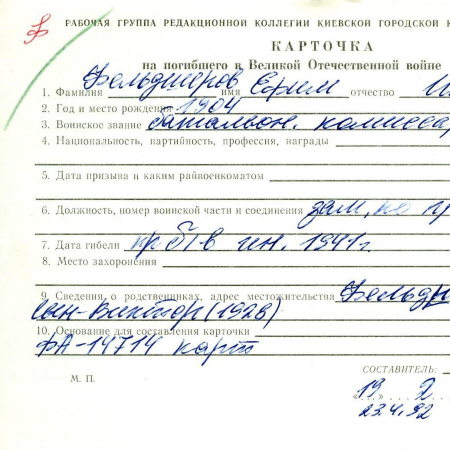 РАБОЧАЯ ГРУППА РЕДАКЦИОННОЙ КОЛЛЕГИИ КИЕВСКОЙ ГОРОДСКОЙ К
КАРТОЧКА
на погибшего в Великой Отечественной войне
1. Фамилия Фельдшеров имя Ефим отчество
2. Год и место рождения 1904
3. Воинское звание батальон. комиссар
4. Национальность, партийность, профессия, награды
5. Дата призыва и каким райвоенкоматом
6. Должность, номер воинской части и соединения зам. по
7. Дата гибели пр б/в иен. 1941 г
8. Место захоронения
9. Сведения о родственниках, адрес местожительства
сын-Виктор (1928)
10. Основание для составления карточки
ФА-14714 карт
СОСТАВИТЕЛЬ:
М. П.
«19» 2
23.4.92